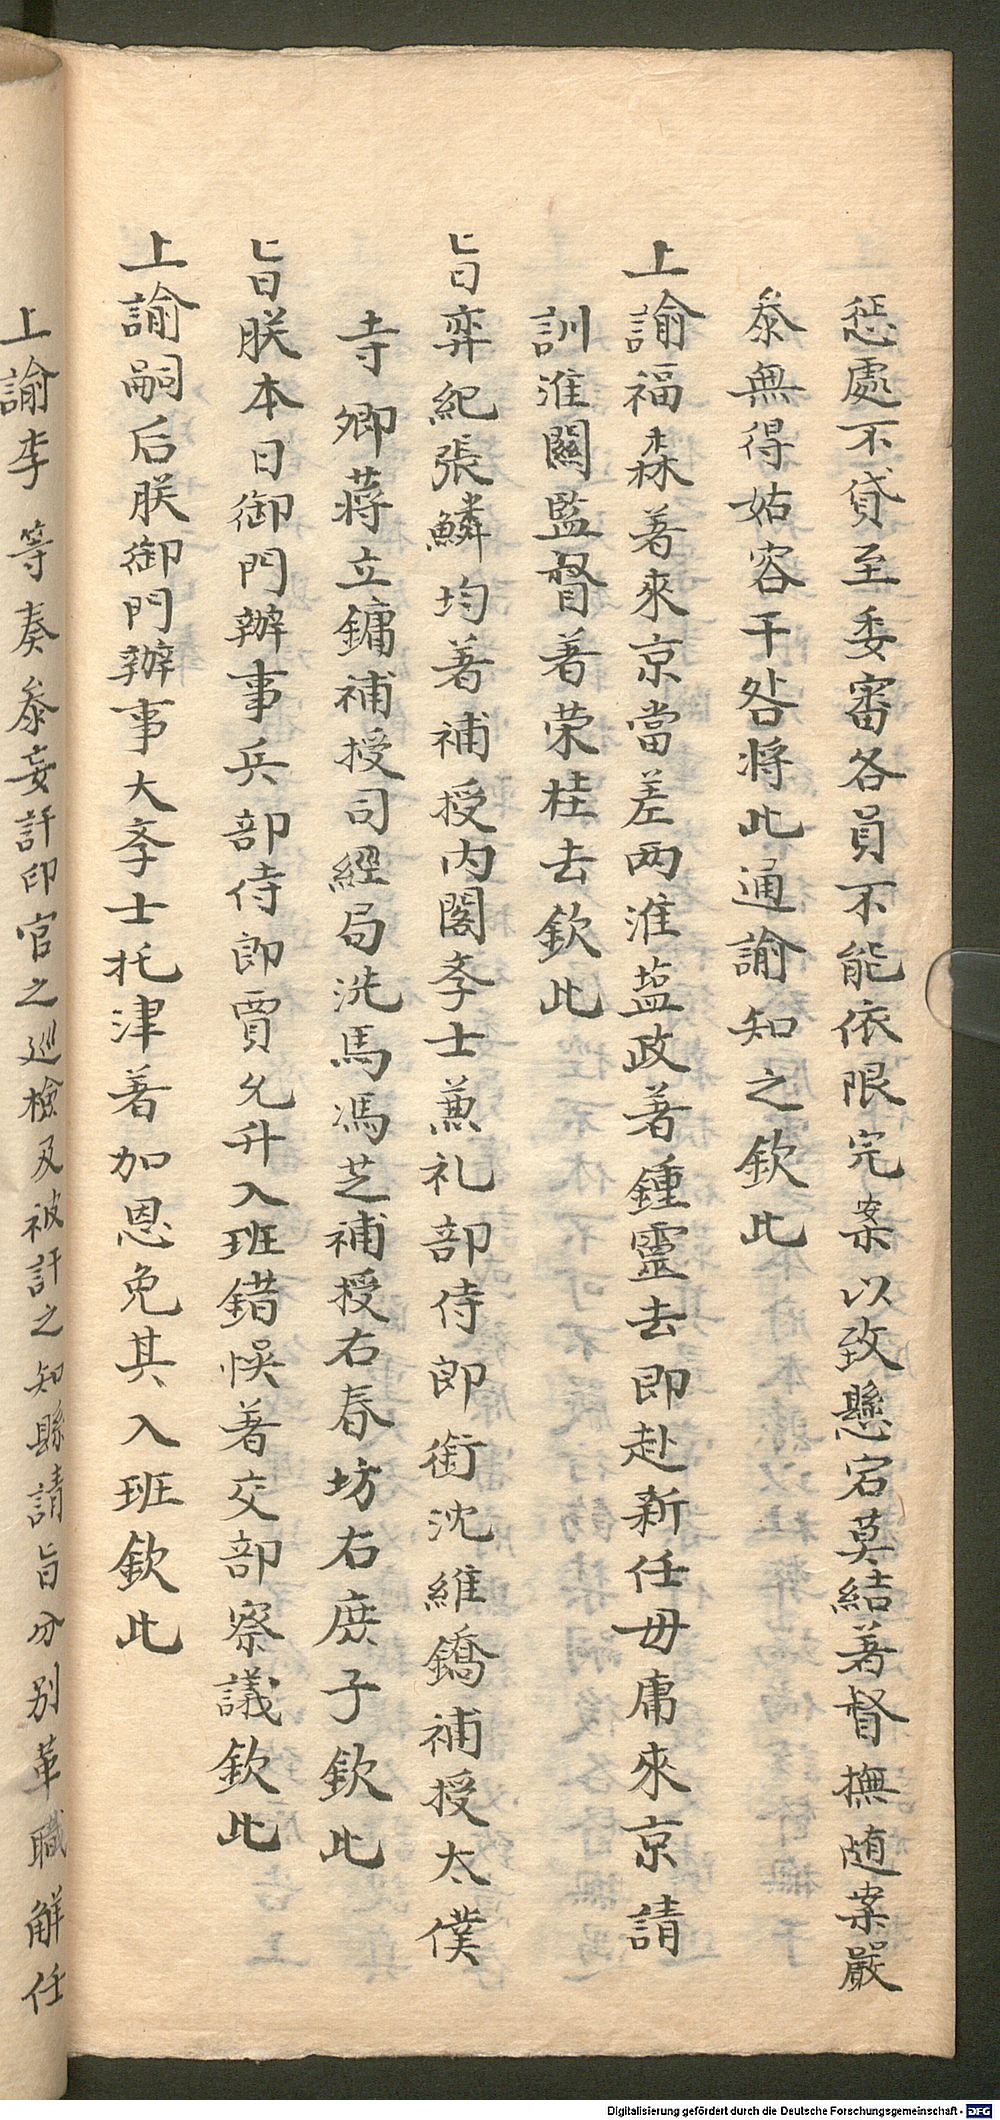 惩處不貸至委審各員不能依限完案以致懸宕莫結著督撫随案嚴
叅無得姑容干咎将此通諭知之欽此
上諭福森著來京當差两淮塩政著鍾靈去即赴新任毋庸來京請
訓淮關監督著荣桂去欽此
旨弈紀張鱗均著補授内閣斈士兼礼部侍郎銜沈維鐈補授太僕
寺卿蒋立鏞補授司經局洗馬馮芝補授右春坊右庻子欽此
旨朕本日御門辦事兵部侍郎賈允升入班錯悮著交部察議欽此
上諭嗣后朕御門辦事大斈士托津著加恩免其入班欽此
上諭李 等奏叅妄訐印官之巡檢及被訐之知縣請旨分别革職解任
Digitalisierung gefördert durch die Deutsche Forschungsgemeinschaft - DFG